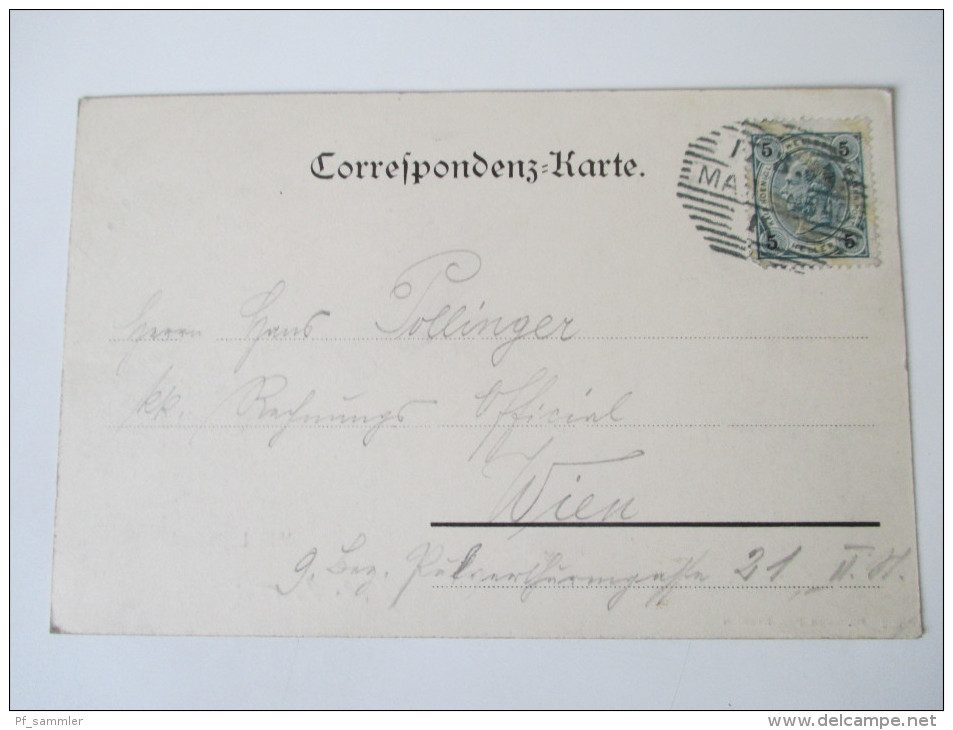 Correspondenz-Karte.
MA
5 5
5 5
Herrn Hans Pollinger
kk. Rechnungs Official
Wien
9. Bez. Pulverthurmgasse 21 II. St.
Pf_sammler
www.delcampe.net